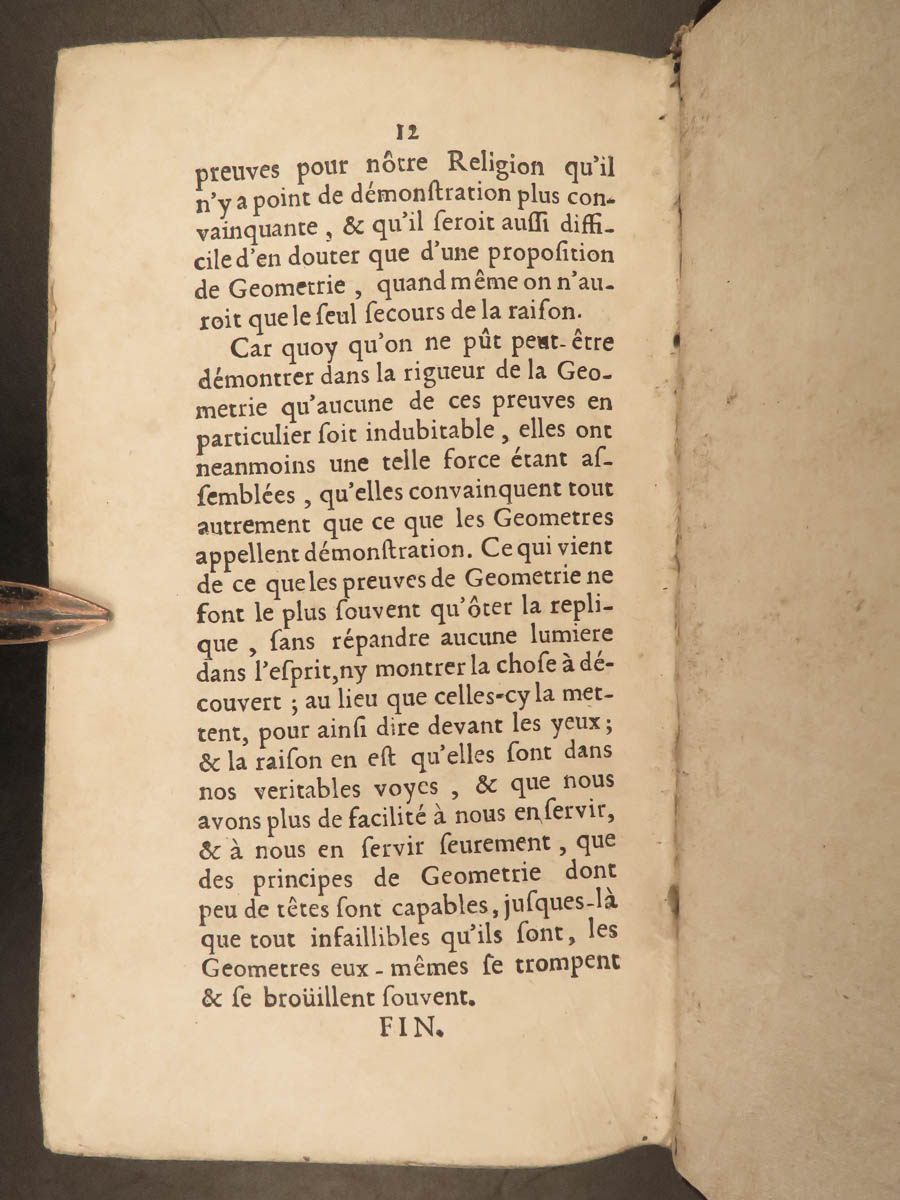 12
preuves pour nôtre Religion qu'il
n'y a point de démonſtration plus con-
vainquante, & qu'il ſeroit auſſi diffi-
cile d'en douter que d'une propoſition
de Geometrie, quand même on n'au-
roit que le ſeul ſecours de la raiſon.
Car quoy qu'on ne pût peut-être
démontrer dans la rigueur de la Geo-
metrie qu'aucune de ces preuves en
particulier ſoit indubitable, elles ont
neanmoins une telle force étant aſ-
ſemblées, qu'elles convainquent tout
autrement que ce que les Geometres
appellent démonſtration. Ce qui vient
de ce que les preuves de Geometrie ne
font le plus ſouvent qu'ôter la repli-
que, ſans répandre aucune lumiere
dans l'eſprit, ny montrer la choſe à dé-
couvert; au lieu que celles-cy la met-
tent, pour ainſi dire devant les yeux;
& la raiſon en eſt qu'elles ſont dans
nos veritables voyes, & que nous
avons plus de facilité à nous en ſervir,
& à nous en ſervir ſeurement, que
des principes de Geometrie dont
peu de têtes ſont capables, juſques-là
que tout infaillibles qu'ils ſont, les
Geometres eux-mêmes ſe trompent
& ſe broüillent ſouvent.
FIN.